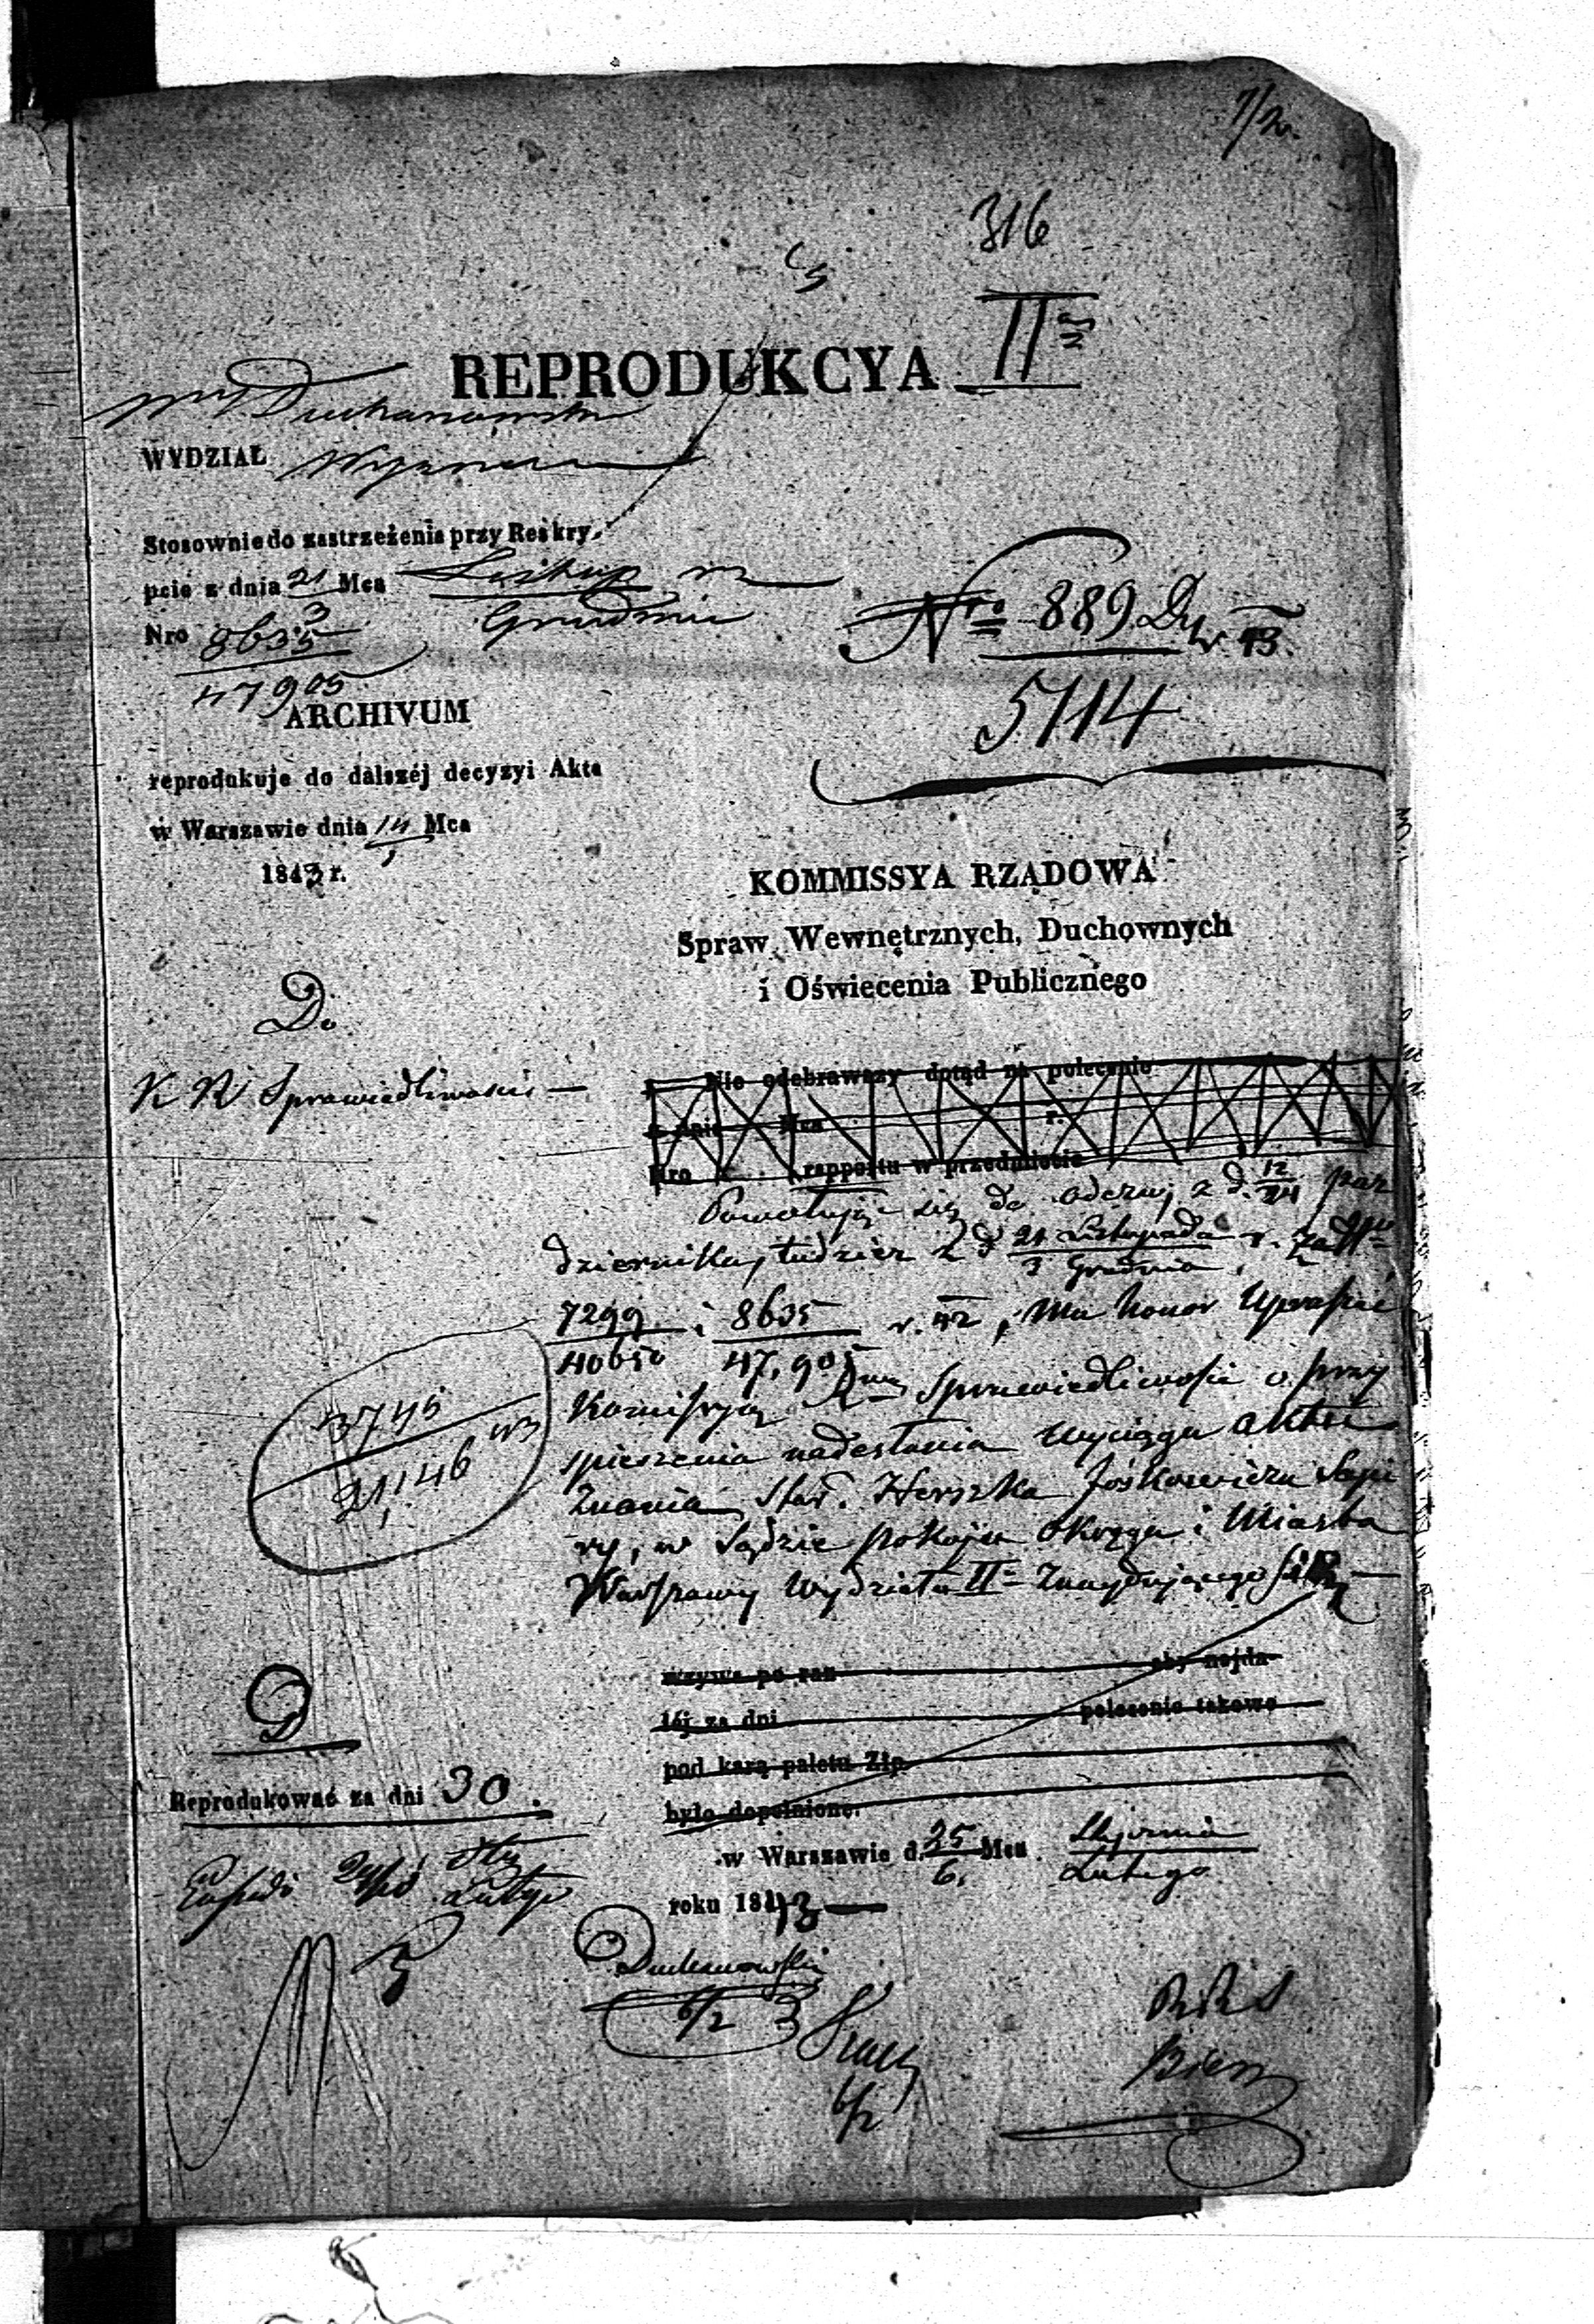 7/2.
316
REPRODUKCYA II
Duchanowski
WYDZIAŁ Wyznań
Stosownie do zastrzeżenia przy Reskry-
pcie z dnia 21 Mca Listop
3 Grudnia
Nro 8635
47905
Nro 889 Dy w 43.
5114
ARCHIVUM
reprodukuje do dalszéj decyzyi Akta
w Warszawie dnia 14 Mca
1843 r.
KOMMISSYA RZĄDOWA
Spraw Wewnętrznych, Duchownych
i Oświecenia Publicznego
Do
K R Sprawiedliwości —
Nie odebrawszy dotąd na polecenie
z dnia Mca r.
Nro rapportu w przedmiocie
Powołując się do odezwy z d. 12/24 paz
dziernika, tudzież z d 21 Listopada r. z
3 Grudnia
7299 i 8635 r. 42, ma honor Uprasić
40650 47,905
Komisyą Rwą Sprawiedliwości o przy
spieszenie nadesłania Wyciągu aktu
Znania Star. Herszka Joskowicza Sapi
ry, w Sądzie pokoju Okręgu i Miasta
Warszawy Wydziału II Znaydującego się
3745
21,146 43
wzywa po raz aby najda-
léj za dni polecenie takowe
pod karą paletu Złp.
było dopełnione.
D
Reprodukować za dni 30.
w Warszawie d. 25 Mca Stycznia
6. Lutego
roku 1843 —
Lutego
Duchanowski
6/2 3
6/2